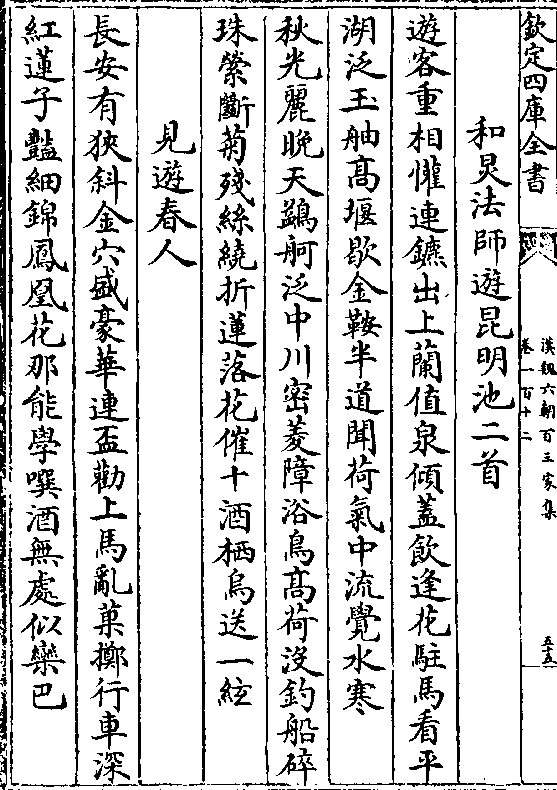 欽定四庫全書
漢魏六朝百三家集
卷一百十二
五十五
和炅法師遊昆明池二首
遊客重相懽連鑣出上蘭值泉傾蓋飲逢花駐馬看平
湖泛玉舳髙堰歇金鞍半道聞荷氣中流覺水寒
秋光麗晚天鷁舸泛中川密菱障浴鳥髙荷没釣船碎
珠縈斷菊殘絲繞折蓮落花催十酒栖烏送一絃
見遊春人
長安有狹斜金穴盛豪華連盃勸上馬亂菓擲行車深
紅蓮子豔細錦鳳凰花那能學噀酒無處似欒巴